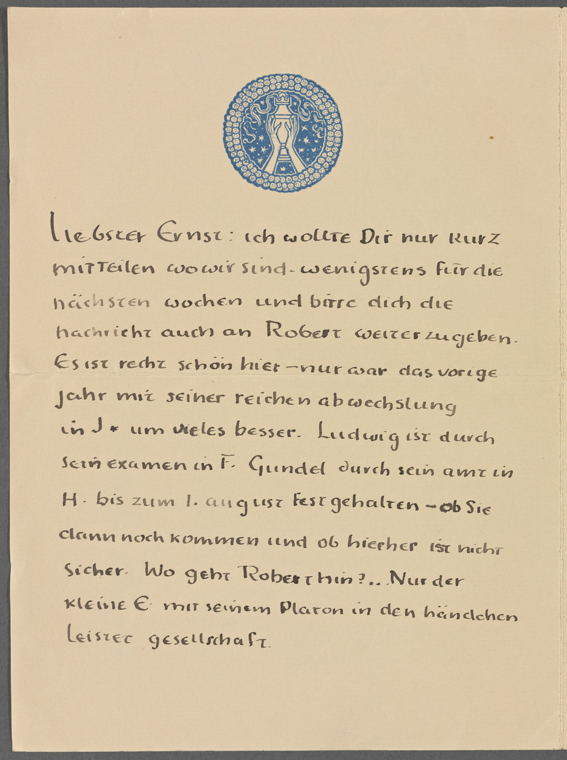 Liebster Ernst: ich wollte Dir nur kurz
mitteilen wo wir sind - wenigstens für die
nächsten wochen und bitte dich die
nachricht auch an Robert weiterzugeben.
Es ist recht schön hier - nur war das vorige
jahr mit seiner reichen abwechslung
in J* um vieles besser. Ludwig ist durch
sein examen in F. Gundel durch sein amt in
H. bis zum 1. august festgehalten - ob Sie
dann noch kommen und ob hierher ist nicht
sicher. Wo geht Robert hin?.. Nur der
kleine E mit seinem Platon in den händchen
leistet gesellschaft.